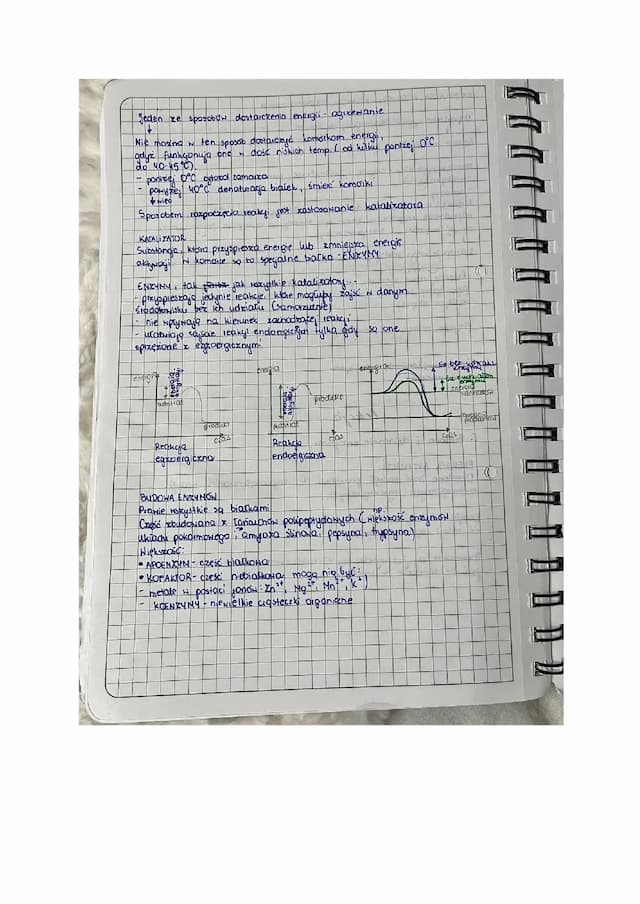 Jeden ze sposobów dostarczenia energii - ogrzewanie
↓
Nie można w ten sposób dostarczyć komórkom energii,
gdyż funkcjonują one w dość niskich temp. (od kilku poniżej 0°C
do 40-45°C).
- poniżej 0°C cytozol zamarza
- powyżej 40°C denaturacja białek, śmierć komórki
Sposobem rozpoczęcia reakcji jest zastosowanie katalizatora
KATALIZATOR
Substancja, która przyspiesza energię lub zmniejsza energię
aktywacji. W komórce są to specjalne białka - ENZYMY.
ENZYMY, tak jak wszystkie katalizatory...
- przyspieszają jedynie reakcje, które mogłyby zajść w danym
środowisku bez ich udziału (samorzutne)
- nie wpływają na kierunek zachodzącej reakcji
- ułatwiają zajście reakcji endoergicznych tylko gdy są one
sprzężone z egzoergicznymi
energia
substrat
produkt
czas
Reakcja
egzoergiczna
energia
produkt
substrat
czas
Reakcja
endoergiczna
energia
Ea bez udziału
enzymu
Ea z udziałem
enzymu
energia
substratów
energia
produktów
czas
BUDOWA ENZYMÓW
Prawie wszystkie są białkami
Część zbudowana z łańcuchów polipeptydowych (np. większość enzymów
układu pokarmowego; amylaza ślinowa, pepsyna, trypsyna)
Większość:
• APOENZYM - część białkowa
• KOFAKTOR - część niebiałkowa, mogą nią być:
- metale w postaci jonów (Zn²⁺, Mg²⁺, Mn²⁺, K⁺)
- KOENZYMY - niewielkie cząsteczki organiczne